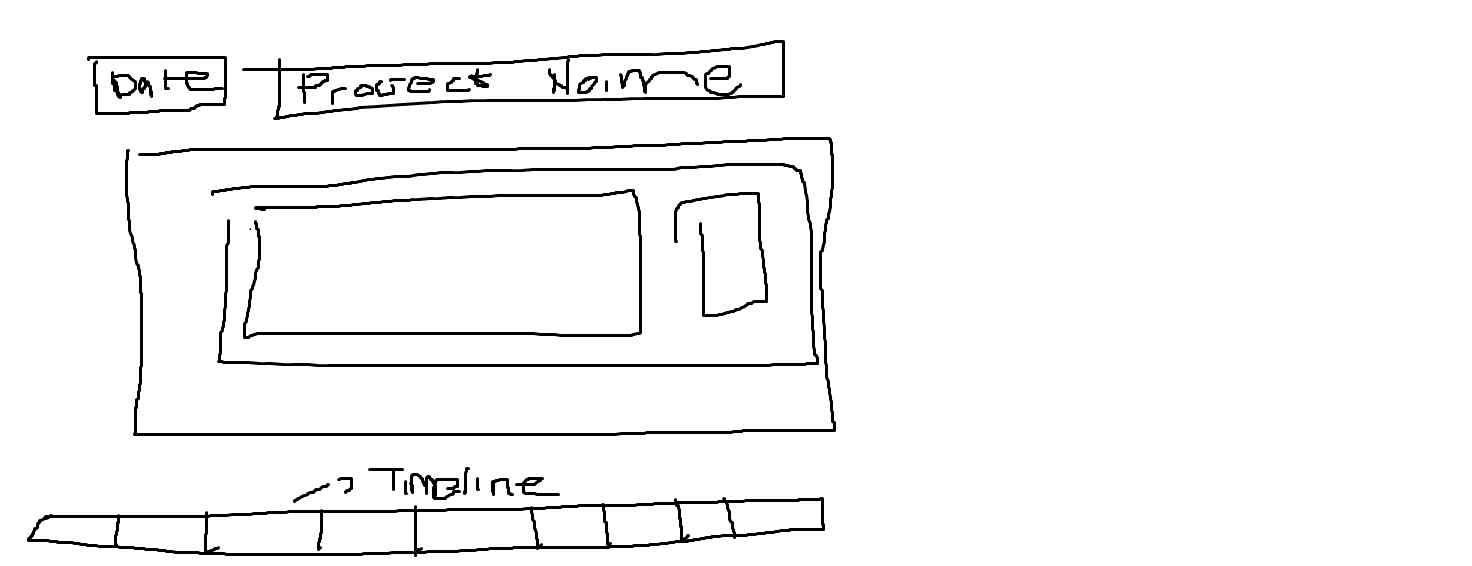 Date
Project Name
Timeline